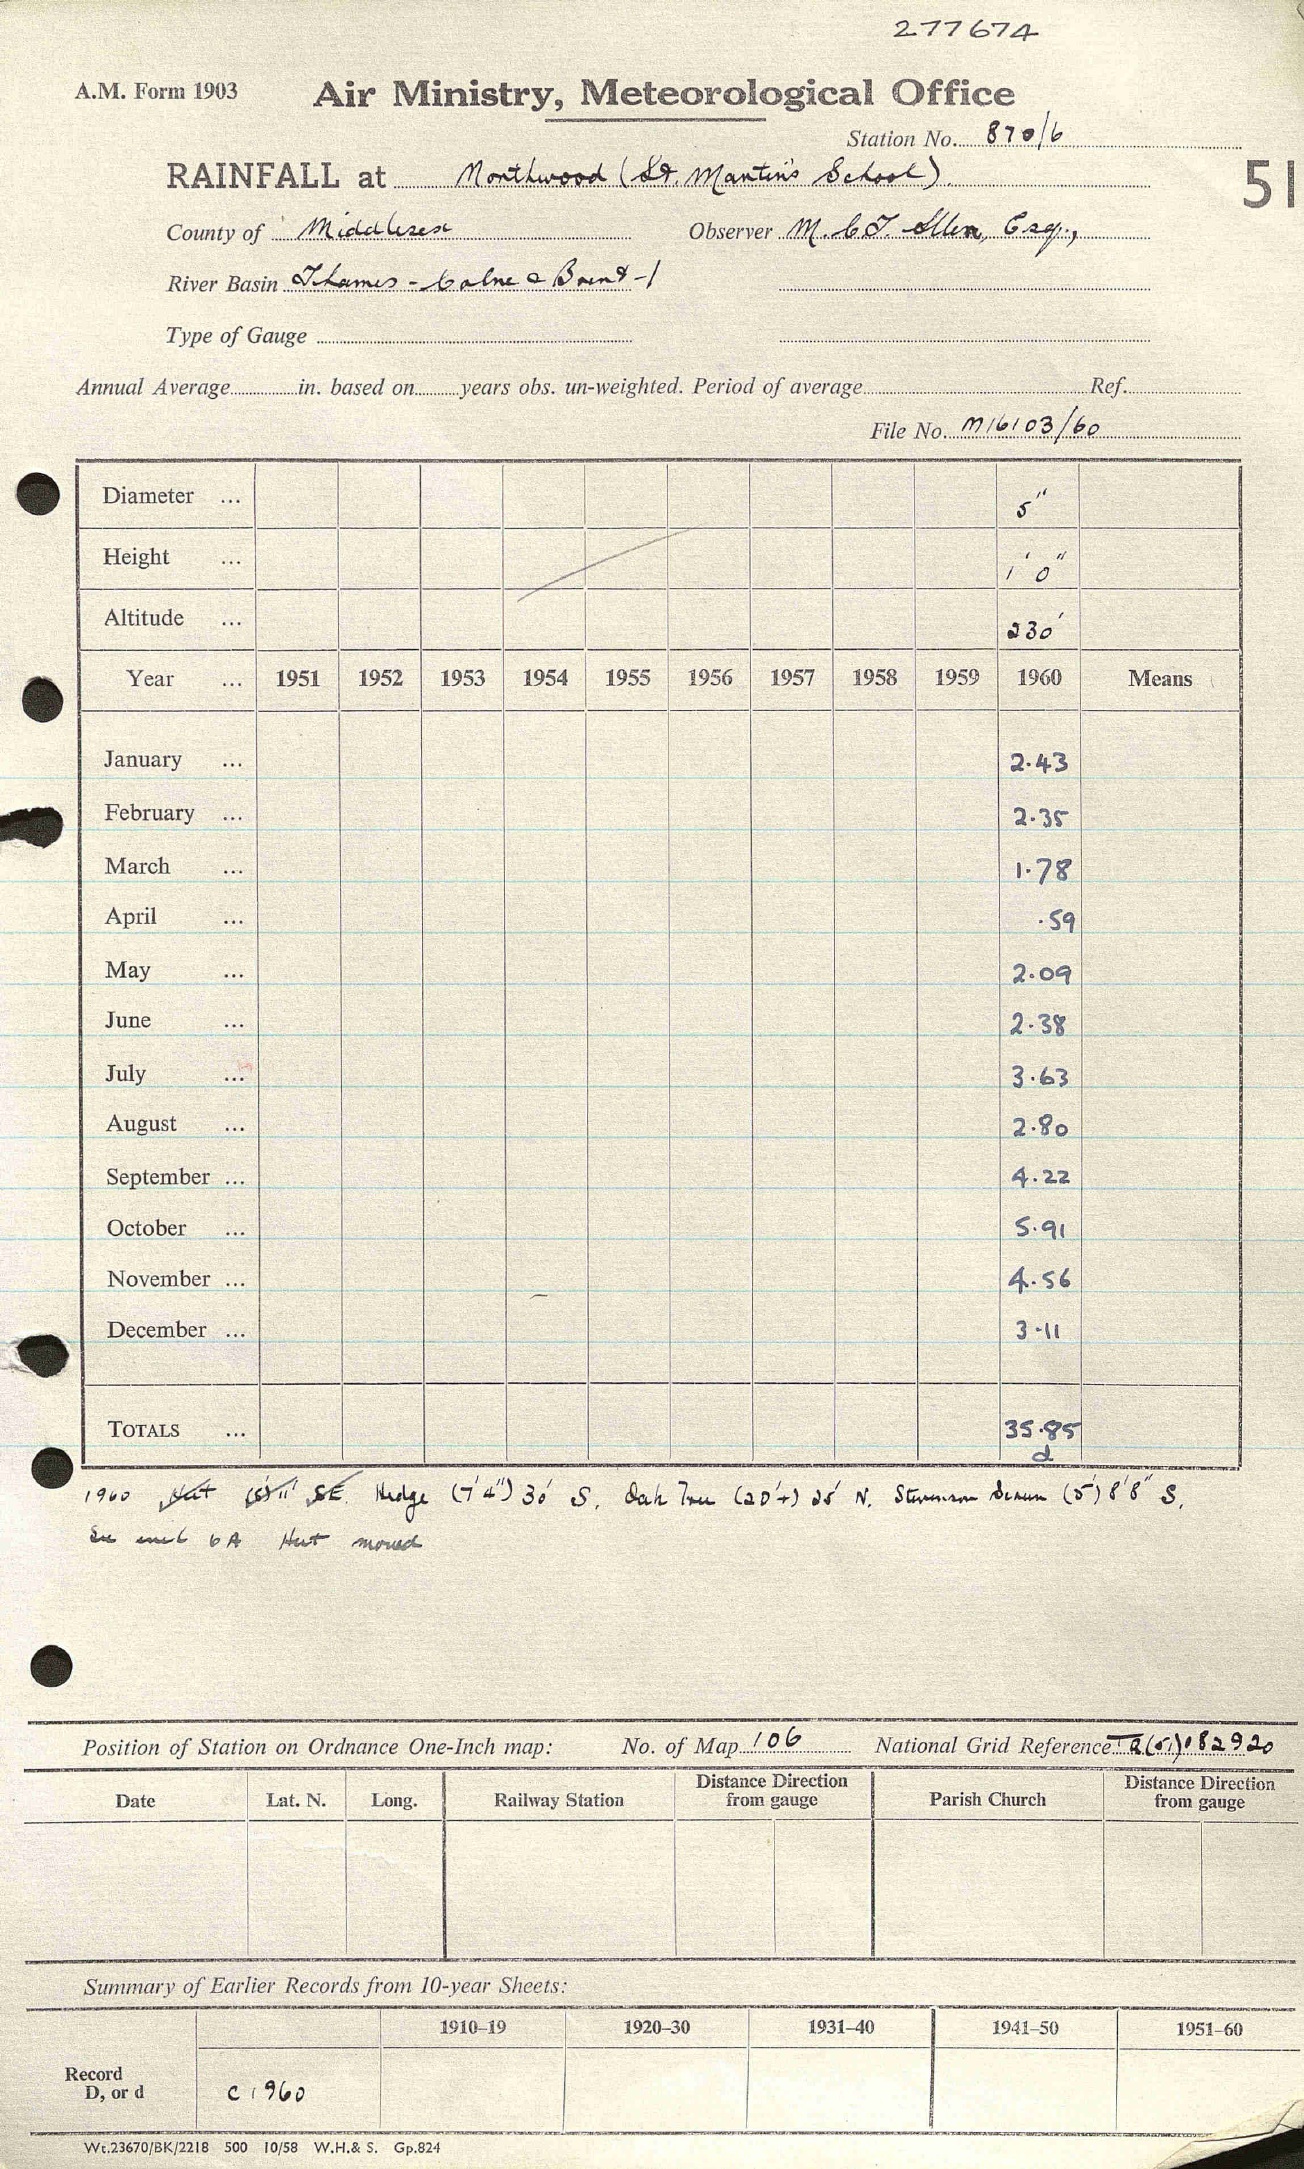 277674
A.M. Form 1903 Air Ministry, Meteorological Office
Station No. 870/6
RAINFALL at Northwood (St. Martin's School).
51
County of Middlesex Observer M. C. J. Allen, Esq.,
River Basin Thames - Colne & Brent - 1
Type of Gauge
Annual Average in. based on years obs. un-weighted. Period of average Ref.
File No. M16103/60
Diameter ... 5"
Height ... 1' 0"
Altitude ... 230'
Year ... 1951 1952 1953 1954 1955 1956 1957 1958 1959 1960 Means
January ... 2.43
February ... 2.35
March ... 1.78
April ... .59
May ... 2.09
June ... 2.38
July ... 3.63
August ... 2.80
September ... 4.22
October ... 5.91
November ... 4.56
December ... 3.11
TOTALS ... 35.85
d
1960 Hut (6') 11' SE. Hedge (7'4") 30' S, Oak Tree (20'+) 25' N. Stevenson Screen (5') 8'8" S.
See encl 6A Hut moved
Position of Station on Ordnance One-Inch map: No. of Map 106 National Grid Reference TQ(51)082920
Date Lat. N. Long. Railway Station Distance Direction from gauge Parish Church Distance Direction from gauge
Summary of Earlier Records from 10-year Sheets:
1910–19 1920–30 1931–40 1941–50 1951–60
Record
D, or d c 1960
Wt.23670/BK/2218 500 10/58 W.H.& S. Gp.824